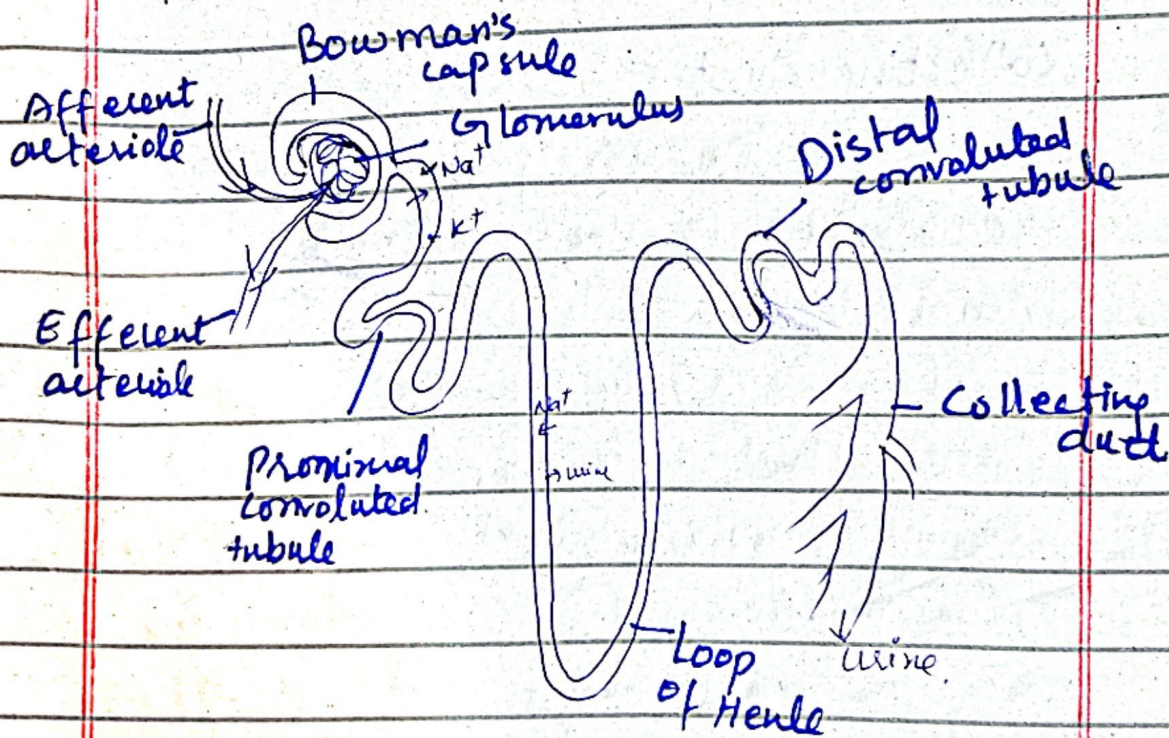 Bowman's
capsule
Afferent
arteriole
Glomerulus
Na⁺
K⁺
Distal
convoluted
tubule
Efferent
arteriole
Proximal
convoluted
tubule
Na⁺
urine
Collecting
duct
Loop
of Henle
urine